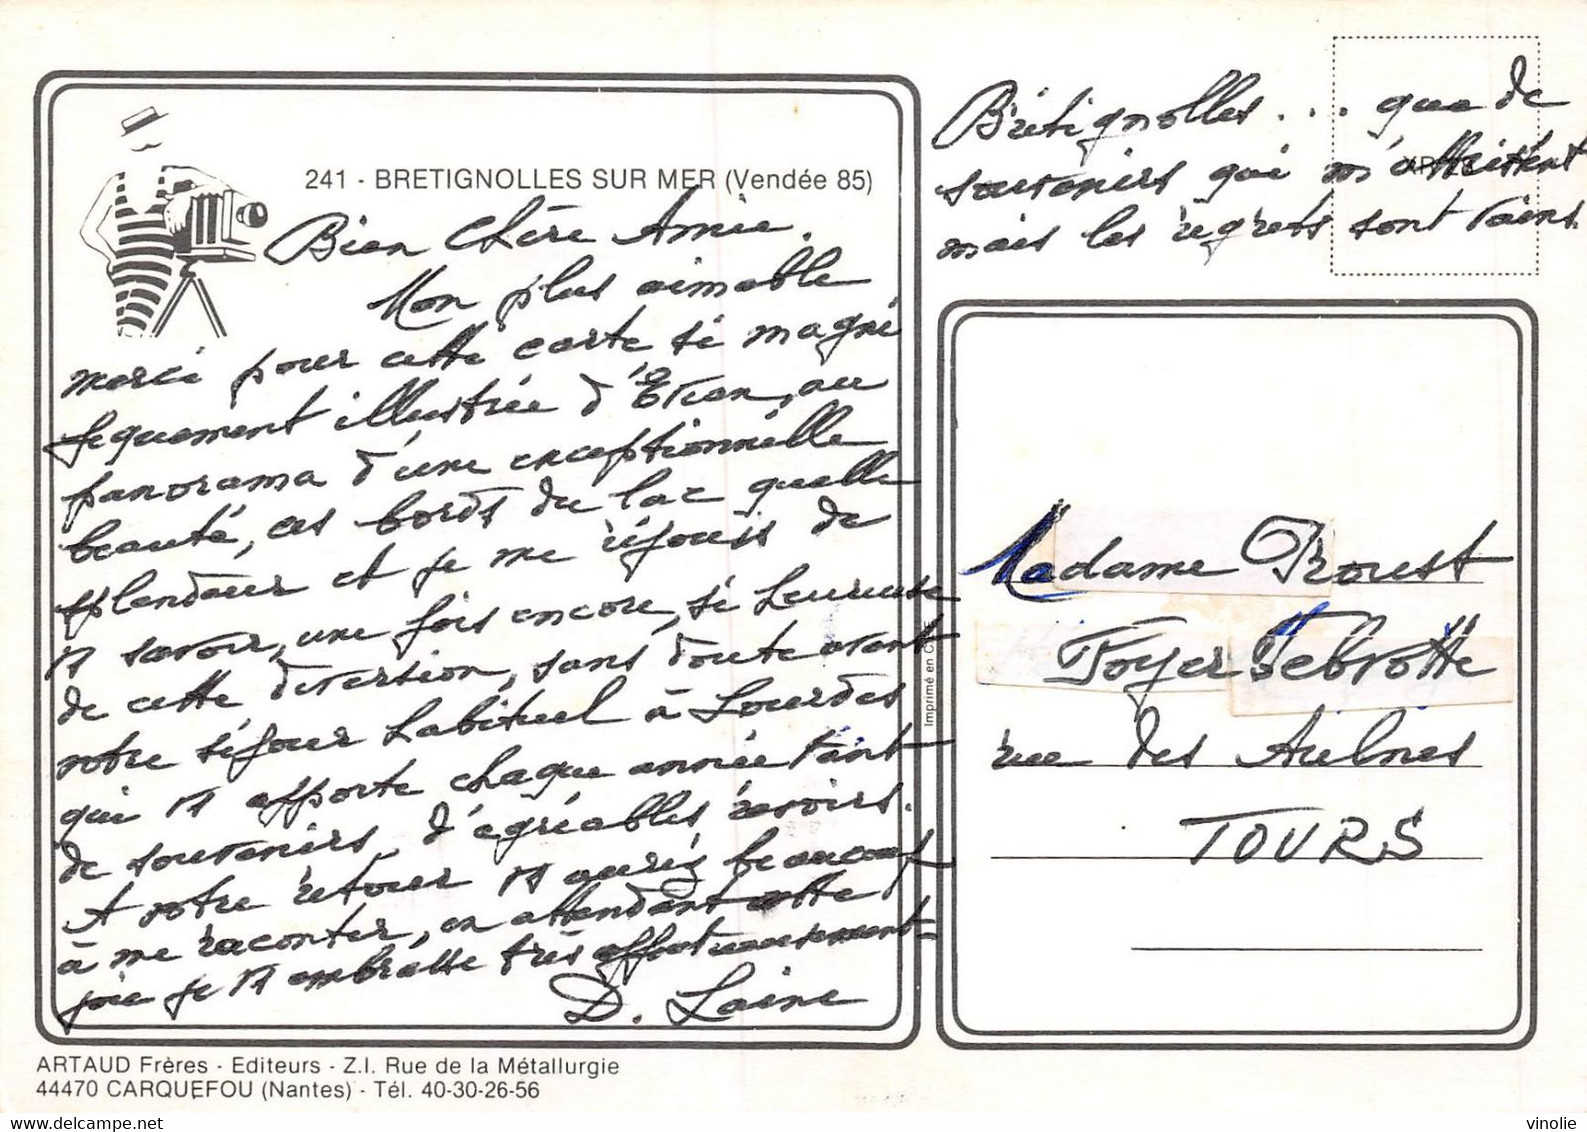 241 - BRETIGNOLLES SUR MER (Vendée 85)
Bien Chère Amie,
Mon plus aimable
merci pour cette carte si magni
fiquement illustrée d'Evian, au
panorama d'une exceptionnelle
beauté, ces bords du lac quelle
splendeur et je me réjouis de
vs savoir, une fois encore, si heureuse
de cette diversion, sans doute avant
votre séjour habituel à Lourdes
qui vs apporte chaque année tant
de souvenirs, d'agréables revoirs.
A votre retour vs aurez beaucoup
à me raconter, en attendant cette
joie je vs embrasse très affectueusement
D. Laine
Brétignolles... que de
souvenirs qui m'attristent
mais les regrets sont vains.
Madame Proust
Foyer Debrotte
rue des Aulnes
TOURS
Imprimé en C.E.E.
ARTAUD Frères - Editeurs - Z.I. Rue de la Métallurgie
44470 CARQUEFOU (Nantes) - Tél. 40-30-26-56
vinolie